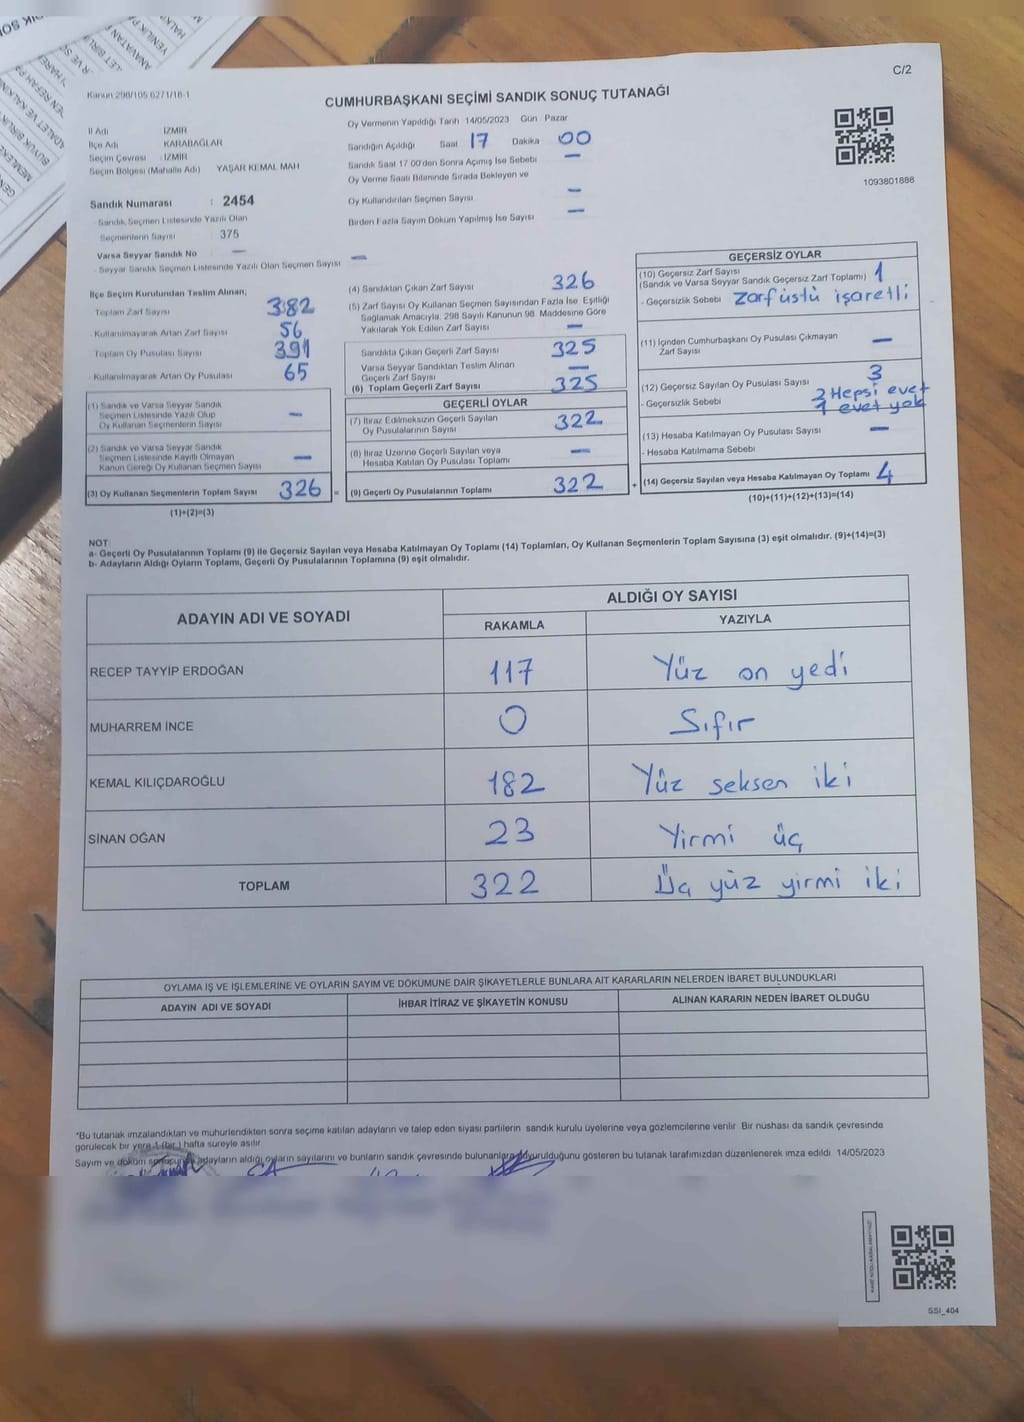 C/2
Kanun 298/105 6271/18-1
CUMHURBAŞKANI SEÇİMİ SANDIK SONUÇ TUTANAĞI
İl Adı İZMİR
İlçe Adı KARABAĞLAR
Seçim Çevresi : İZMİR
Seçim Bölgesi (Mahalle Adı) YAŞAR KEMAL MAH
Oy Vermenin Yapıldığı Tarih 14/05/2023 Gün Pazar
Sandığın Açıldığı Saat 17 Dakika 00
Sandık Saat 17 00'den Sonra Açımış İse Sebebi —
Oy Verme Saati Bitiminde Sırada Bekleyen ve
Oy Kullandırılan Seçmen Sayısı —
Birden Fazla Sayım Döküm Yapılmış İse Sayısı —
1093801888
Sandık Numarası : 2454
- Sandık Seçmen Listesinde Yazılı Olan
Seçmenlerin Sayısı 375
Varsa Seyyar Sandık No —
- Seyyar Sandık Seçmen Listesinde Yazılı Olan Seçmen Sayısı —
İlçe Seçim Kurulundan Teslim Alınan;
Toplam Zarf Sayısı 382
- Kullanılmayarak Artan Zarf Sayısı 56
Toplam Oy Pusulası Sayısı 391
- Kullanılmayarak Artan Oy Pusulası 65
(1) Sandık ve Varsa Seyyar Sandık
Seçmen Listesinde Yazılı Olup
Oy Kullanan Seçmenlerin Sayısı —
(2) Sandık ve Varsa Seyyar Sandık
Seçmen Listesinde Kayıtlı Olmayan
Kanun Gereği Oy Kullanan Seçmen Sayısı —
(3) Oy Kullanan Seçmenlerin Toplam Sayısı 326 =
(1)+(2)=(3)
(4) Sandıktan Çıkan Zarf Sayısı 326
(5) Zarf Sayısı Oy Kullanan Seçmen Sayısından Fazla İse Eşitliği
Sağlamak Amacıyla, 298 Sayılı Kanunun 98 Maddesine Göre
Yakılarak Yok Edilen Zarf Sayısı —
Sandıkta Çıkan Geçerli Zarf Sayısı 325
Varsa Seyyar Sandıktan Teslim Alınan
Geçerli Zarf Sayısı —
(6) Toplam Geçerli Zarf Sayısı 325
GEÇERLİ OYLAR
(7) İtiraz Edilmeksizin Geçerli Sayılan
Oy Pusulalarının Sayısı 322
(8) İtiraz Üzerine Geçerli Sayılan veya
Hesaba Katılan Oy Pusulası Toplamı —
(9) Geçerli Oy Pusulalarının Toplamı 322 +
GEÇERSİZ OYLAR
(10) Geçersiz Zarf Sayısı
(Sandık ve Varsa Seyyar Sandık Geçersiz Zarf Toplamı) 1
- Geçersizlik Sebebi Zarf üstü işaretli
(11) İçinden Cumhurbaşkanı Oy Pusulası Çıkmayan
Zarf Sayısı —
(12) Geçersiz Sayılan Oy Pusulası Sayısı 3
- Geçersizlik Sebebi 2 Hepsi evet
1 evet yok
(13) Hesaba Katılmayan Oy Pusulası Sayısı —
- Hesaba Katılmama Sebebi
(14) Geçersiz Sayılan veya Hesaba Katılmayan Oy Toplamı 4
(10)+(11)+(12)+(13)=(14)
NOT:
a- Geçerli Oy Pusulalarının Toplamı (9) ile Geçersiz Sayılan veya Hesaba Katılmayan Oy Toplamı (14) Toplamları, Oy Kullanan Seçmenlerin Toplam Sayısına (3) eşit olmalıdır. (9)+(14)=(3)
b- Adayların Aldığı Oyların Toplamı, Geçerli Oy Pusulalarının Toplamına (9) eşit olmalıdır.
ADAYIN ADI VE SOYADI
ALDIĞI OY SAYISI
RAKAMLA YAZIYLA
RECEP TAYYİP ERDOĞAN 117 Yüz on yedi
MUHARREM İNCE 0 Sıfır
KEMAL KILIÇDAROĞLU 182 Yüz seksen iki
SİNAN OĞAN 23 Yirmi üç
TOPLAM 322 Üç yüz yirmi iki
OYLAMA İŞ VE İŞLEMLERİNE VE OYLARIN SAYIM VE DÖKÜMÜNE DAİR ŞİKAYETLERLE BUNLARA AİT KARARLARIN NELERDEN İBARET BULUNDUKLARI
ADAYIN ADI VE SOYADI İHBAR İTİRAZ VE ŞİKAYETİN KONUSU ALINAN KARARIN NEDEN İBARET OLDUĞU
*Bu tutanak imzalandıktan ve mühürlendikten sonra seçime katılan adayların ve talep eden siyasi partilerin sandık kurulu üyelerine veya gözlemcilerine verilir. Bir nushası da sandık çevresinde
görülecek bir yere 1 (bir) hafta süreyle asılır.
Sayım ve döküm adayların aldığı oyların sayılarını ve bunların sandık çevresinde bulunanlara duyurulduğunu gösteren bu tutanak tarafımızdan düzenlenerek imza edildi. 14/05/2023
SSI_404